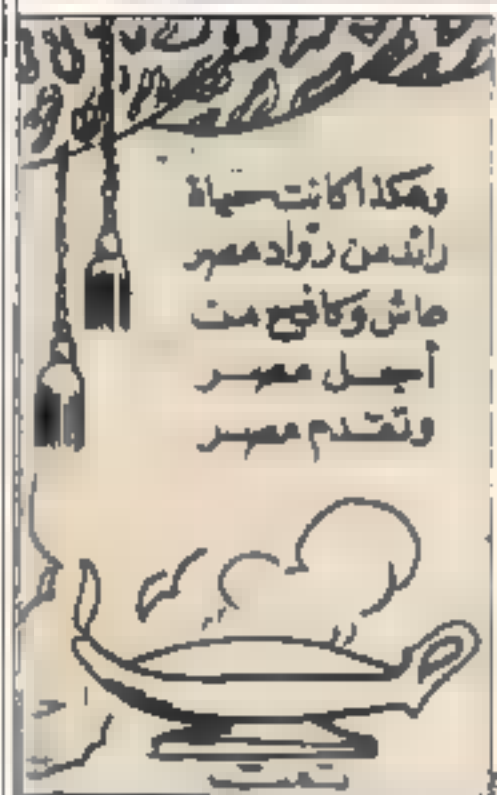 وهكذا كانت حياة
رائد من رواد مصر
عاش وكافح من
أجل مصر
وتقدم مصر
تمت